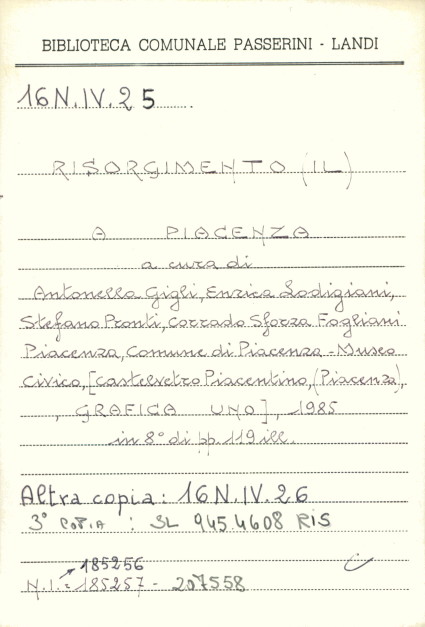 BIBLIOTECA COMUNALE PASSERINI - LANDI
16N.IV.25
RISORGIMENTO (IL)
A PIACENZA
a cura di
Antonella Gigli, Enrica Lodigiani,
Stefano Pronti, Corrado Sforza Fogliani
Piacenza, Comune di Piacenza - Museo
Civico, [Castelvetro Piacentino, (Piacenza),
, GRAFICA UNO], 1985
in 8° di pp. 119 ill.
Altra copia: 16N.IV.26
3° COPIA : SL 945.4608 RIS
185256
N.I. = 185257 - 207558